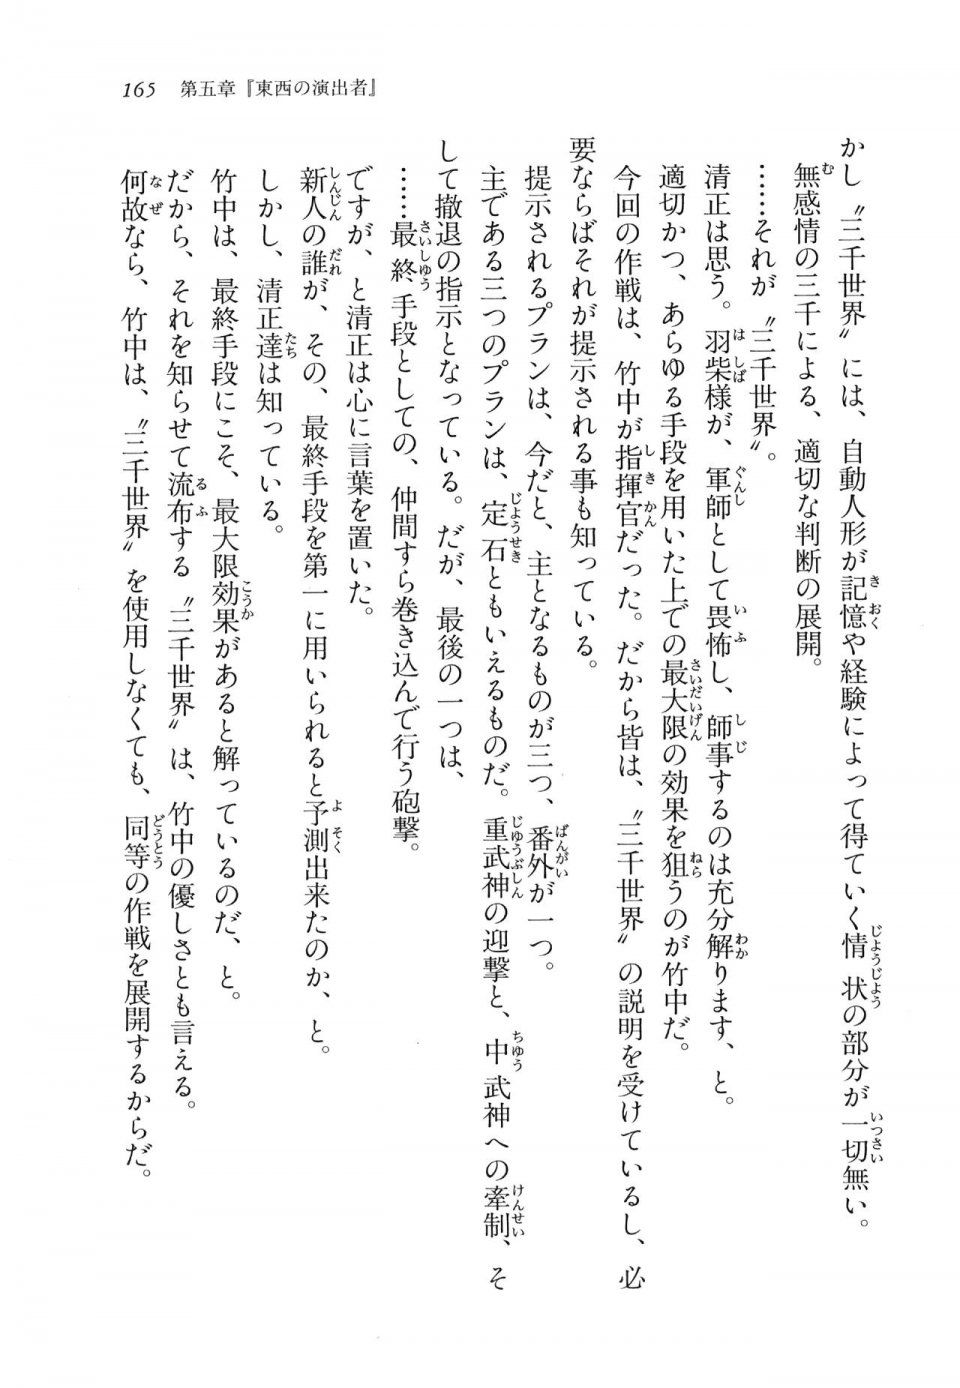 165　第五章『東西の演出者』
かし〝三千世界〟には、自動人形が記憶や経験によって得ていく情状の部分が一切無い。
無感情の三千による、適切な判断の展開。
……それが〝三千世界〟。
清正は思う。羽柴様が、軍師として畏怖し、師事するのは充分解ります、と。
適切かつ、あらゆる手段を用いた上での最大限の効果を狙うのが竹中だ。
今回の作戦は、竹中が指揮官だった。だから皆は、〝三千世界〟の説明を受けているし、必
要ならばそれが提示される事も知っている。
提示されるプランは、今だと、主となるものが三つ、番外が一つ。
主である三つのプランは、定石ともいえるものだ。重武神の迎撃と、中武神への牽制、そ
して撤退の指示となっている。だが、最後の一つは、
……最終手段としての、仲間すら巻き込んで行う砲撃。
ですが、と清正は心に言葉を置いた。
新人の誰が、その、最終手段を第一に用いられると予測出来たのか、と。
しかし、清正達は知っている。
竹中は、最終手段にこそ、最大限効果があると解っているのだ、と。
だから、それを知らせて流布する〝三千世界〟は、竹中の優しさとも言える。
何故なら、竹中は、〝三千世界〟を使用しなくても、同等の作戦を展開するからだ。